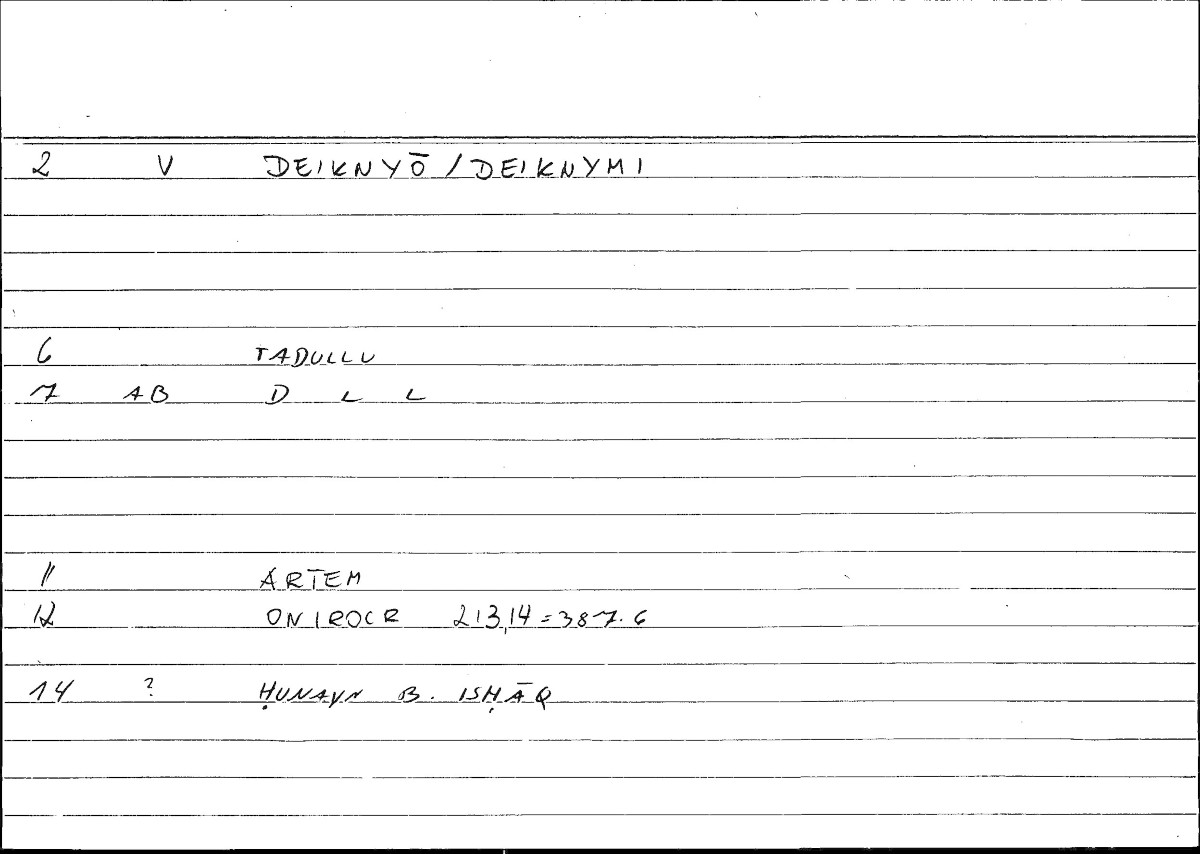 2 V DEIKNYŌ / DEIKNYMI
6 TADULLU
7 AB D L L
11 ARTEM
12 ONIROCR 213,14 = 387.6
14 ? ḤUNAYN B. ISḤĀQ